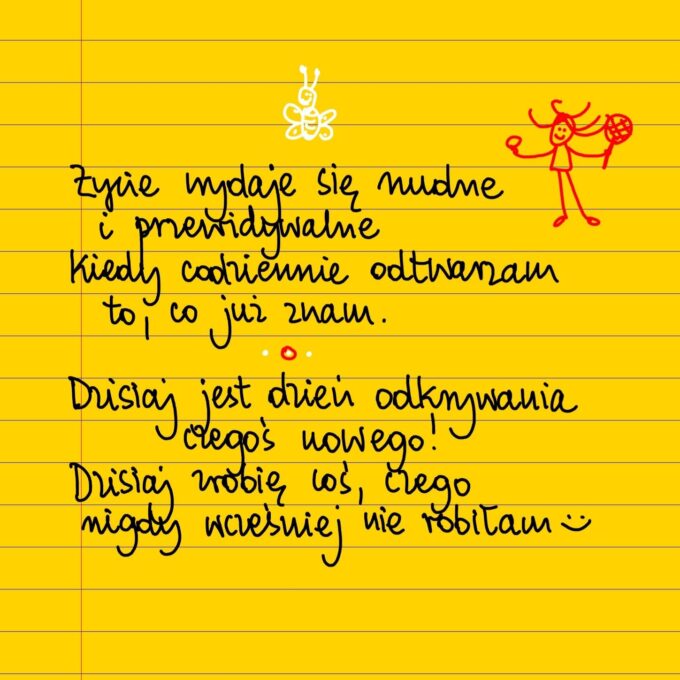 Życie wydaje się nudne
i przewidywalne
Kiedy codziennie odtwarzam
to, co już znam.
Dzisiaj jest dzień odkrywania
czegoś nowego!
Dzisiaj zrobię coś, czego
nigdy wcześniej nie robiłam :)